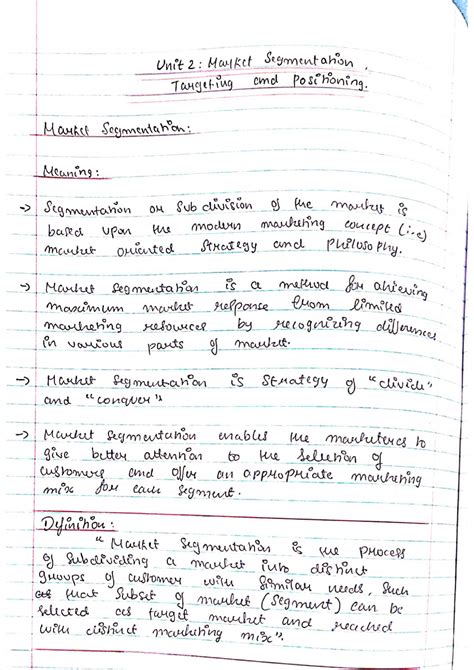 Unit 2: Market Segmentation,
Targeting and Positioning.
Market Segmentation:
Meaning:
-> Segmentation or Subdivision of the market is
based upon the modern marketing concept (i.e)
market oriented strategy and philosophy.
-> Market segmentation is a method for achieving
maximum market response from limited
marketing resources by recognizing differences
in various parts of market.
-> Market segmentation is strategy of "divide"
and "conquer".
-> Market segmentation enables the marketers to
give better attention to the selection of
customers and offer an appropriate marketing
mix for each segment.
Definition:
"Market segmentation is the process
of subdividing a market into distinct
groups of customer with similar needs, such
as that subset of market (segment) can be
selected as target market and reached
with distinct marketing mix".